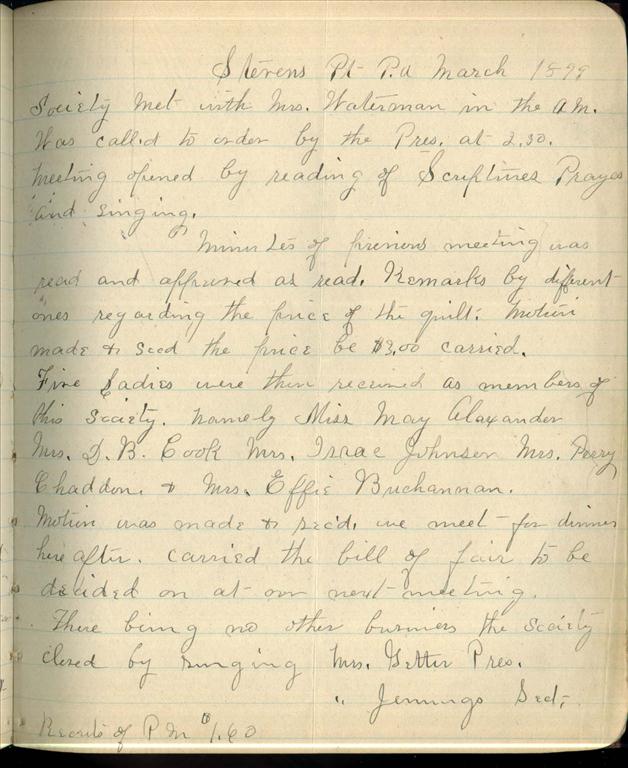 Stevens Pt. P.a March 1899
Society met with Mrs. Waterman in the A.M.
Was called to order by the Pres. at 2.30.
Meeting opened by reading of Scriptures Prayer
and singing.
Minutes of previous meeting was
read and approved as read. Remarks by different
ones regarding the price of the quilt. Motion
made & Secd the price be $3.00 carried.
Five Ladies were then received as members of
this Society. namely Miss May Alaxander
Mrs. D. B. Cook Mrs. Isaac Johnson Mrs. Perry
Chaddon. & Mrs. Effie Buchannan.
Motion was made & sec'd. we meet for dinner
here after. carried the bill of fair to be
decided on at our next meeting.
There being no other business the Society
closed by singing Mrs. Getter Pres.
" Jennings Sect.
of P M $1.60